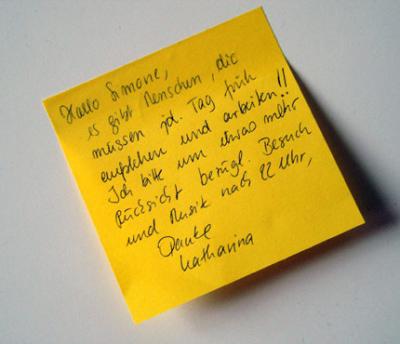 Hallo Simone,
es gibt Menschen, die
müssen jd. Tag früh
aufstehen und arbeiten!!
Ich bitte um etwas mehr
Rücksicht bezügl. Besuch
und Musik nach 22 Uhr,
Danke
Katharina